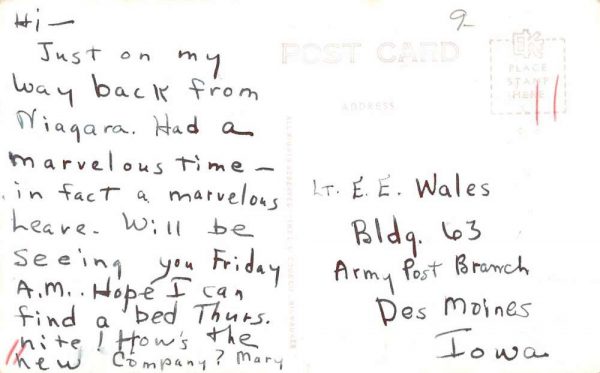 Hi —
Just on my
way back from
Niagara. Had a
marvelous time —
in fact a marvelous
Leave. Will be
seeing you Friday
A.M.. Hope I can
find a bed Thurs.
nite! How's the
new Company? Mary
9-
POST CARD
PLACE
STAMP
HERE
ADDRESS
Lt. E. E. Wales
Bldg. 63
Army Post Branch
Des Moines
Iowa